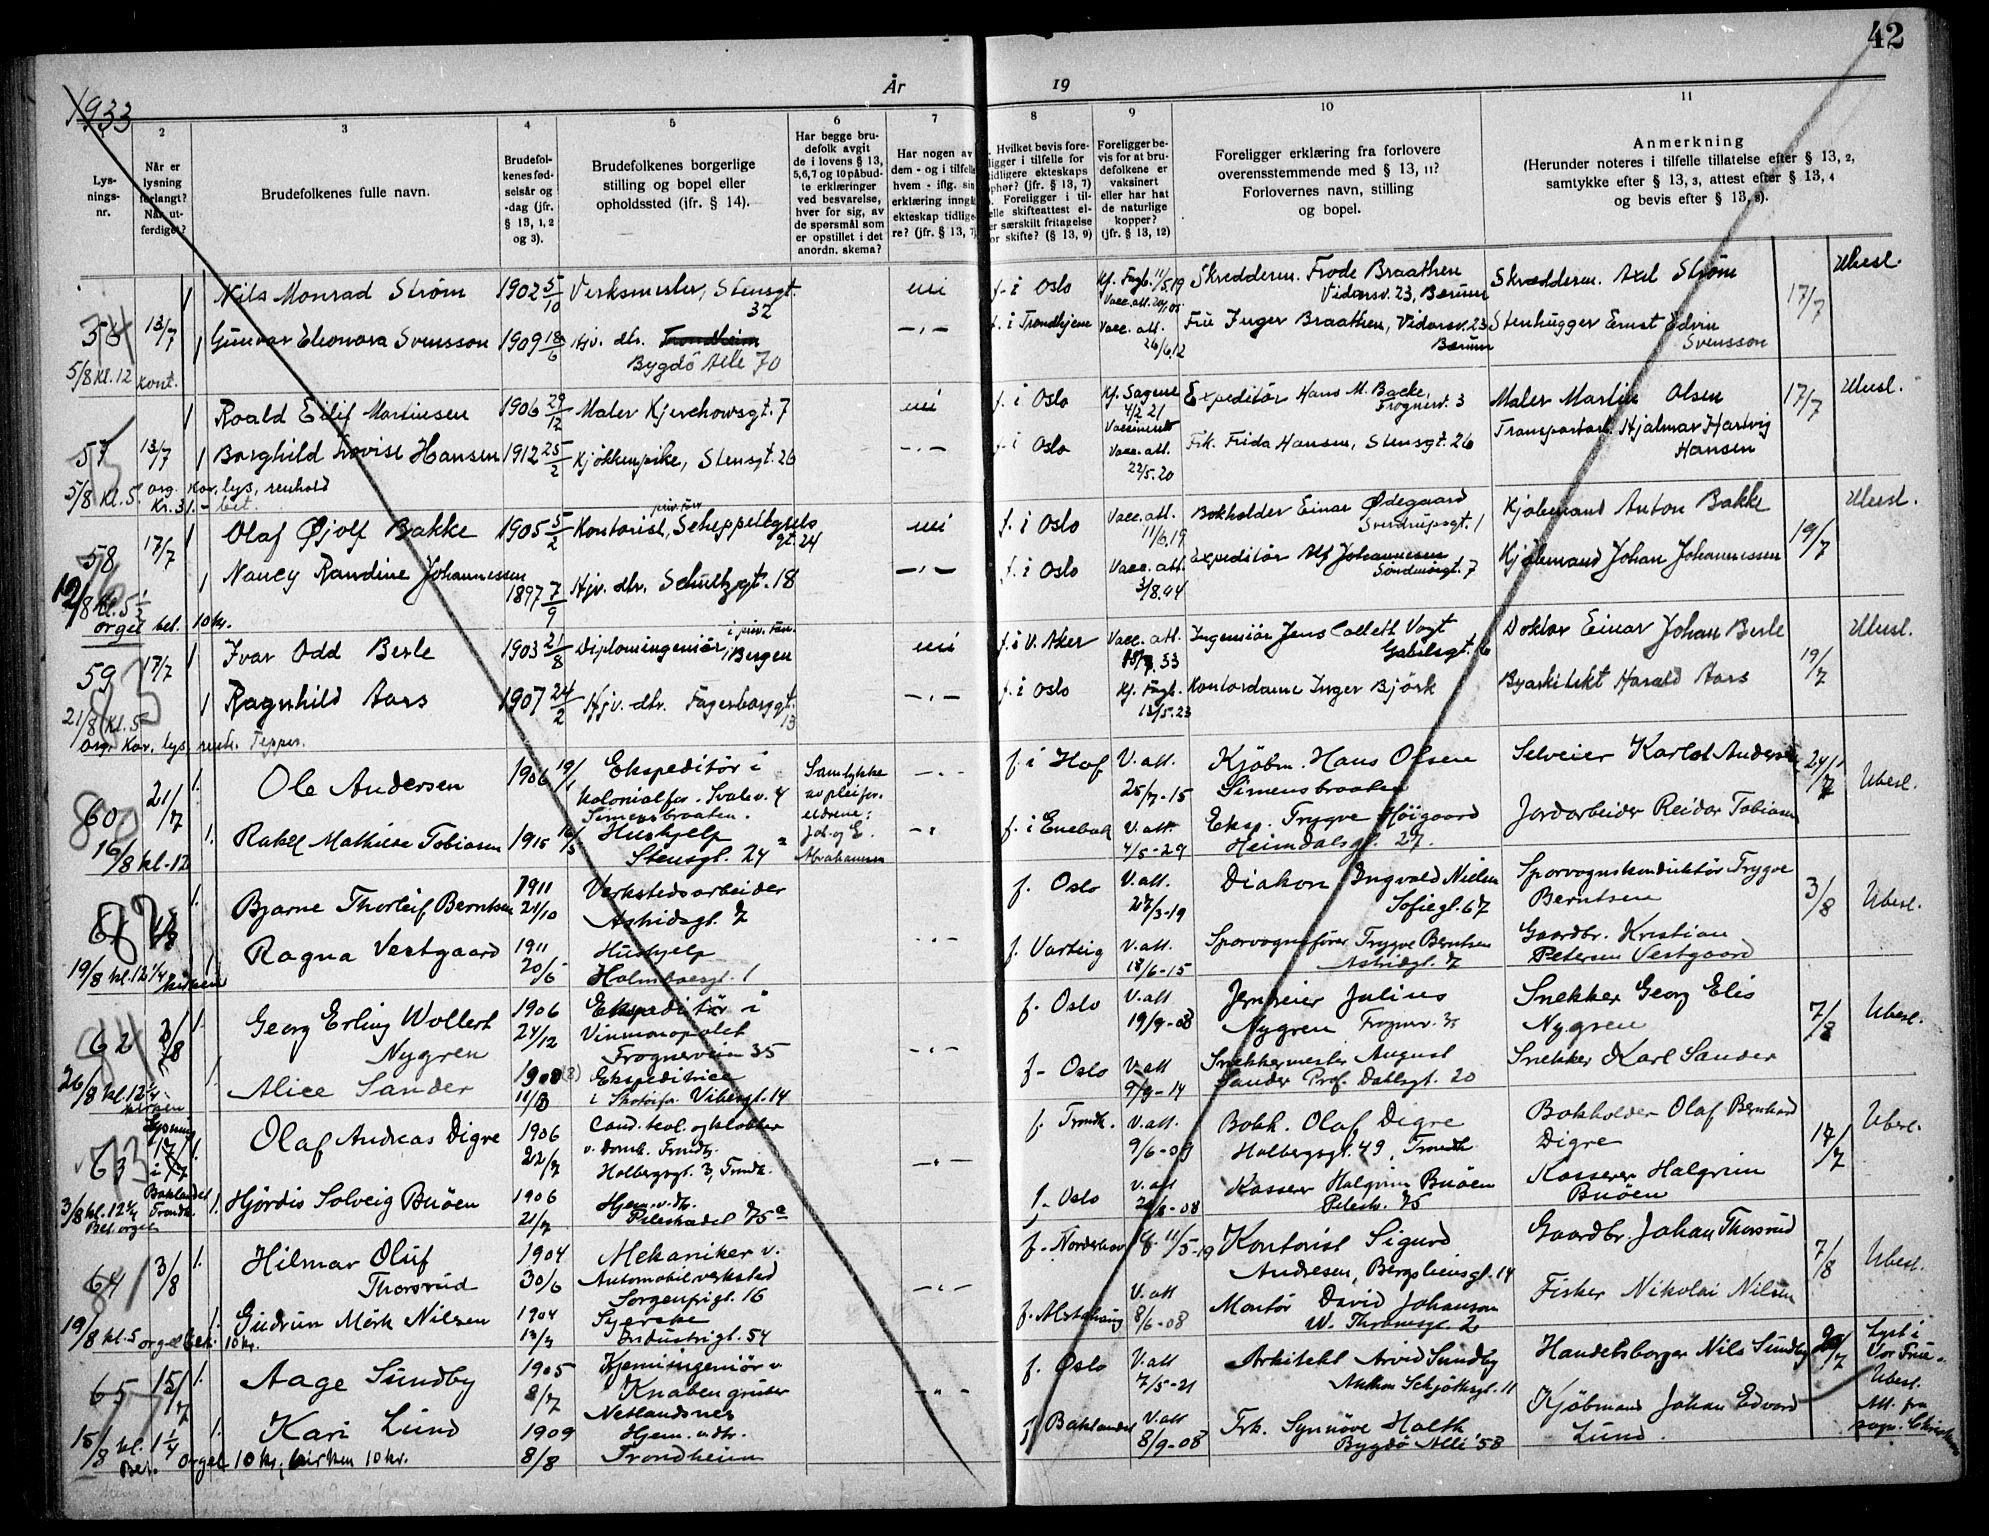 42
År 19
1933
2 3 4 5 6 7 8 9 10 11
Lys-
nings-
nr.
Når er
lysning
forlangt?
Når ut-
ferdiget?
Brudefolkenes fulle navn.
Brudefol-
kenes fød-
selsår og
-dag (jfr.
§ 13, 1, 2
og 3).
Brudefolkenes borgerlige
stilling og bopel eller
opholdssted (ifr. § 14).
Har begge bru-
defolk avgit
de i lovens § 13,
5,6,7 og 10 påbud-
te erklæringer
ved besvarelse,
hver for sig, av
de spørsmål som
er opstillet i det
anordn. skema?
Har nogen av
dem - og i tilfelle
hvem - iflg. sin
erklæring inngå
ekteskap tidlige-
re? (jfr. § 13, 7)
Hvilket bevis fore-
ligger i tilfelle for
tidligere ekteskaps
ophør? (jfr. § 13, 7)
Foreligger i til-
elle skifteattest el-
er særskilt fritagelse
or skifte? (§ 13, 9)
Foreligger be-
vis for at bru-
defolkene er
vaksinert
eller har hat
de naturlige
kopper?
(jfr. § 13, 12)
Foreligger erklæring fra forlovere
overensstemmende med § 13, 11?
Forlovernes navn, stilling
og bopel.
Anmerkning
(Herunder noteres i tilfelle tillatelse efter § 13, 2,
samtykke efter § 13, 3, attest efter § 13, 4
og bevis efter § 13, 8).
56 13/7
5/8 kl. 12 kont.
Nils Monrad Strøm 1902 5/10 Verksmester, Stensgt. 32 nei f. i Oslo Kf. Fagb. 11/5.19 Skredderm. Frode Braathen
Vidarsv. 23, Bærum Skrædderm. Axel Strøm 17/7 Ubesl.
Gunvor Eleonora Svensson 1909 18/6 Hjv. dtr. Trondheim
Bygdö Alle 70 -"- f. i Trondhjem Vacc. att. 26/6.12 Fru Inger Braathen, Vidarsv. 23
Bærum Stenhugger Ernst Edvin
Svensson
57 13/7
5/8 kl. 5. org. kor, lys, renhold
Kr. 31.- bet.
Roald Eilif Martinsen 1906 29/12 Maler Kjerchowsgt. 7 nei f. i Oslo Kf. Sagene 4/2 21 Expeditör Hans M. Backe,
Frognerv. 3 Maler Martin Olsen 17/7 Ubesl.
Borghild Lovise Hansen 1912 25/2 Kjøkkenpike, Stensgt. 26 -"- f. i Oslo Vacc. att. 22/5.20 Frk. Frida Hansen, Stensgt. 26 Transportarb. Hjalmar Hartvig
Hansen
58 17/7
12/8 kl. 5 1/2
orgel bet. 10 kr.
Olaf Øjolf Bakke 1905 5/2 Kontorist, Scheppelbgruls
gt. 24 nei f. i Oslo Vacc. att. 11/6.19 Bokholder Einar Ødegaard
Sverdrupsgt. 1 Kjøbmand Anton Bakke 19/7 Ubesl.
Nancy Randine Johannessen 1897 7/9 Hjv. dtr. Schultzgt. 18 -"- f. i Oslo Vacc. att. 3/8.94 Expeditör Alf Johannessen
Söndmörsgt. 7 Kjøbmand Johan Johannessen
59 17/7
21/8 kl. 5
org. kor. lys, renh. Tepper.
Ivar Odd Berle 1903 21/8 Diplomingeniör, i priv. fan.
Bergen nei f. i V. Aker Vacc. att. Ingeniör Jens Collett Vogt
Gabelsgt. 16 Doktor Einar Johan Berle 19/7 Ubesl.
Ragnhild Aars 1907 24/2 Hjv. dtr. Fagerborggt.
13 -"- f. i Oslo Kf. Fagb. 13/5.23 Kontordame Inger Björk Byarkitekt Harald Aars
60. 21/7
16/8 kl. 12
Ole Andersen 1906 19/1 Ekspeditör i
kolonialfor. Svalev. 4
Simensbraaten. Samtykke
av pleifor-
eldrene:
Joh. og E.
Abrahamsen -"- f. i Hof V. att. 25/7-15 Kjöbm. Hans Olsen
Simensbraaten Selveier Karl Andersen 24/7 Ubesl.
Rakel Mathilde Tobiasen 1915 16/5 Hushjelp
Stensgt. 24 -"- f. i Enebak V. att. 4/5-29 Eksp. Trygve Höigaard
Heimdalsgt. 27. Jordarbeider Reidar Tobiasen
19/8 kl. 12 1/4 kirken
Bjarne Thorleif Berntsen 1911 21/10 Verkstedsarbeider
Astridsgt. 7 f. Oslo V. att. 27/3-19 Diakon Ingvald Nielsen
Sofiegt. 67 Sporvognskonduktör Trygve
Berntsen 3/8 Ubesl.
Ragna Vestgaard 1911 20/5 Hushjelp
Holmboesgt. 1 -"- f. Varteig V. att. 18/6-15 Sporvognsförer Trygve Berntsen
Astridsgt. 7 Gaardbr. Kristian
Petersen Vestgaard
62 2/8
26/8 kl. 12 1/4
kirken
Georg Erling Wollert
Nygren 1906 24/12 Ekspeditör i
Vinmonopolet
Frognerveien 35 -"- f. Oslo V. att 19/9-08 Jerndreier Julius
Nygren Frognerv. 35 Snekker Georg Elis
Nygren 7/8 Ubesl.
Alice Sander 1908 (8) 11/3 Ekspeditrice
i Skotöifor. Vibesgt. 14 f. Oslo V. att 9/9-14 Snekkermester August
Sander Prof. Dahlsgt. 20 Snekker Karl Sander
Lysning
63 17/7
i Baklandet
Trondh.
3/8 kl. 12 1/4
Bet. orgel
Olaf Andreas Digre 1906 22/7 Cand. teol. og klokker
v. Domk. Trondhj.
Holbergsgt. 3, Trondh. -"- f. Trondh. V. att. 9/6-09 Bokh. Olaf Digre
Holbergsgt. 49, Trondh Bokholder Olaf Bernhard
Digre 17/7 Ubesl.
Hjördis Solveig Buöen 1906 21/7 Hjem. v. dtr.
Pilestrædet 75 a f. Oslo V. att Kasserer Halgrim Buöen
Pilestr. 75 Kasserer Halgrim
Buöen
64 3/8
19/8 kl. 5 orgel bet. 10 kr.
Hilmar Oluf
Thorsrud 1904 30/6 Mekaniker v.
Automobilverksted
Sorgenfrigt. 16 -"- f. Norderhov 11/5-19 Kontorist Sigurd
Andresen, Bergsliensgt. 14 Gaardbr. Johan Thorsrud 7/8 Ubesl.
Gudrun Mörk Nilsen 1904 13/3 Syerske
Industrigt. 54 f. Alstahaug V. att 8/6-08 Montör David Johanson
W. Thranesgt. 2 Fisker Nikolai Nilsen
65 15/7
15/8 kl. 1 1/4
Bet. orgel 10 kr, kirken 10 kr.
Aage Sundby 1905 8/7 Kjemiingeniör v
Knaben gruber
Netlandsnes -"- f. Oslo V. att 7/5-21 Arkitekt Arvid Sundby
Anton Schjöthsgt. 11 Handelsborger Nils Sundby Lyst i
Vor Frue.
Ubesl.
Att. fra
sogn.
Kari Lund 1909 8/8 Hjem. v. dtr.
Trondheim f. Baklandet V. att 8/9-08 Frk. Synnöve Holth
Bygdö Alle 58 Kjöbmand Johan Edvard
Lund.